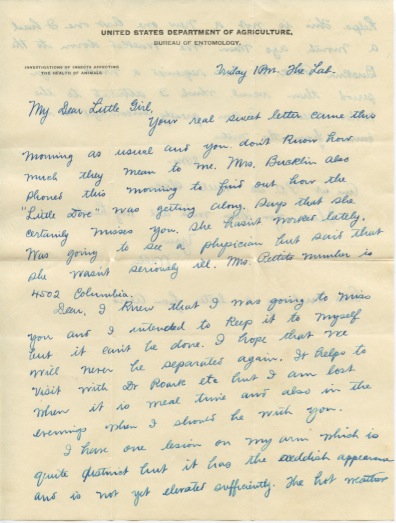 UNITED STATES DEPARTMENT OF AGRICULTURE,
BUREAU OF ENTOMOLOGY.
INVESTIGATIONS OF INSECTS AFFECTING
THE HEALTH OF ANIMALS.
Friday 1 P.M. The Lab.
My Dear Little Girl,
Your real sweet letter came this
morning as usual and you don't know how
much they mean to me. Mrs. Bucklin also
phoned this morning to find out how the
"Little Dove" was getting along. Says that she
certainly misses you. She hasn't worked lately.
Was going to see a physician but said that
she wasn't seriously ill. Mrs. Pettits number is
4502 Columbia.
Dear, I knew that I was going to miss
you and I intended to keep it to myself
but it can't be done. I hope that we
will never be separated again. It helps to
visit with Dr Roark etc but I am lost
when it is meal time and also in the
evenings when I should be with you.
I have one lesion on my arm which is
quite distinct but it has the reddish appearance
and is not yet elevated sufficiently. The hot weather